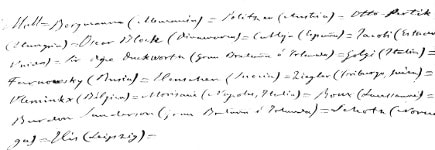 Hall = Bergmann (Alemania) = Politzer (Austria) = Otto Pertik
(Hungria) = Oscar Block (Dinamarca) = Calleja (España) = Jacobi (Estados
Unidos) = Sir Dyce Duckworth (gran Bretaña é Irlanda) = Golgi (Italia) =
Tarnowsky (Rusia) = Henschen (Suecia) = Ziegler (Friburgo, Suiza) =
Vleminkx (Bélgica) = (Napoles, Italia) = Roux (Lausanne) =
Burdon Sanderson (gran Bretaña é Irlanda) = (Norue
ga) = His (Leipzig) =